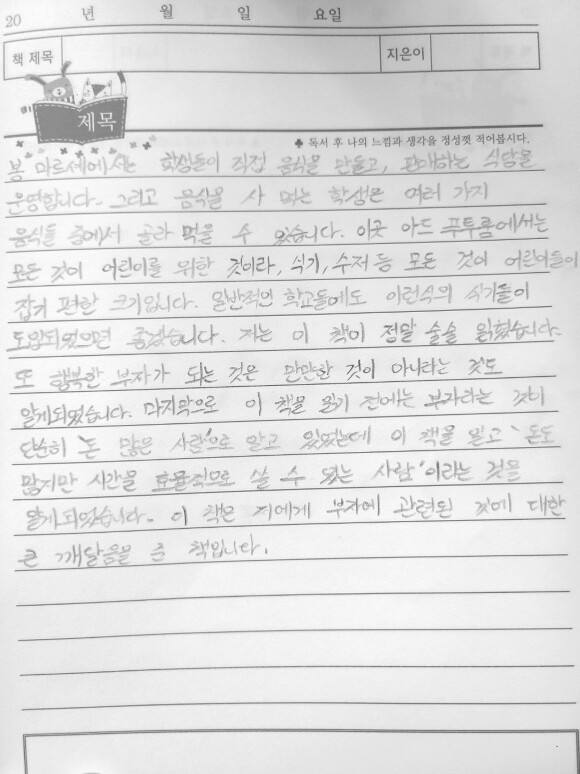 20 년 월 일 요일
책 제목 지은이
제목
♣ 독서 후 나의 느낌과 생각을 정성껏 적어봅시다.
봉 마르셰에서는 학생들이 직접 음식을 만들고, 판매하는 식당을
운영합니다. 그리고 음식을 사 먹는 학생은 여러 가지
음식들 중에서 골라 먹을 수 있습니다. 이곳 아드 푸투룸에서는
모든 것이 어린이를 위한 것이라, 식기, 수저 등 모든 것이 어린이들이
잡기 편한 크기입니다. 일반적인 학교들에도 이런식의 식기들이
도입되었으면 좋겠습니다. 저는 이 책이 정말 술술 읽혔습니다.
또 행복한 부자가 되는 것은 만만한 것이 아니라는 것도
알게되었습니다. 마지막으로 이 책을 읽기 전에는 부자라는 것이
단순히 '돈 많은 사람'으로 알고 있었는데 이 책을 읽고 '돈도
많지만 시간을 효율적으로 쓸 수 있는 사람'이라는 것을
알게되었습니다. 이 책은 저에게 부자에 관련된 것에 대한
큰 깨달음을 준 책입니다.